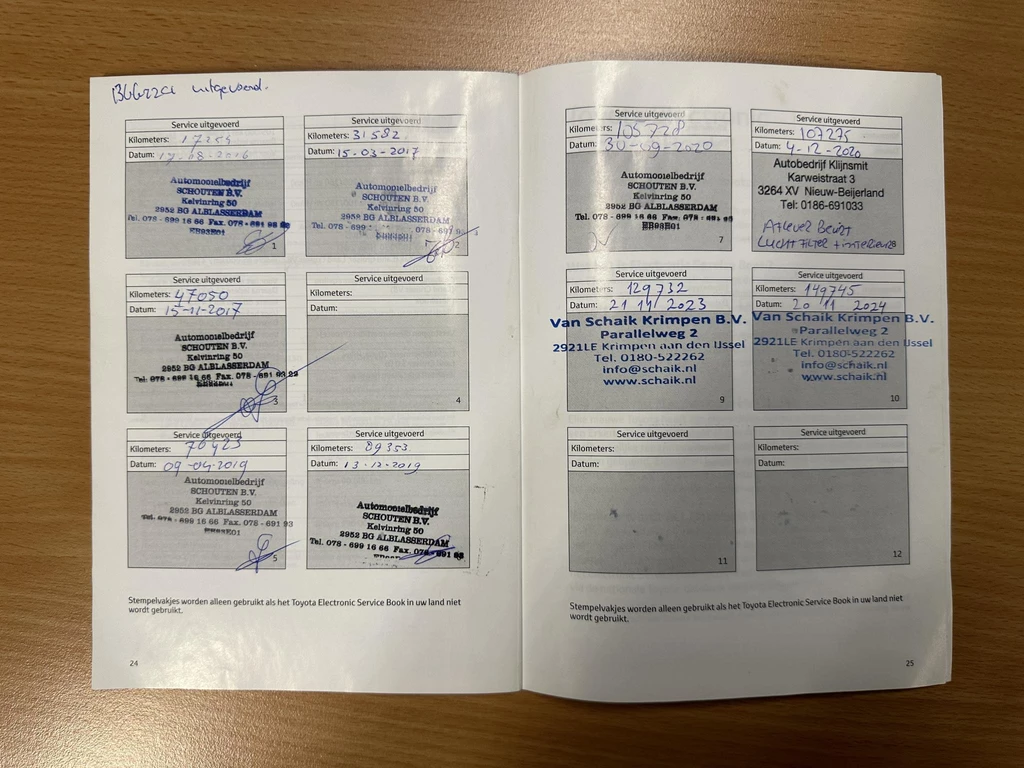 uitgevoerd.
Service uitgevoerd
Kilometers: 17254
Datum: 17-08-2016
Automobielbedrijf
SCHOUTEN B.V.
Kelvinring 50
2952 BG ALBLASSERDAM
Tel. 078 - 699 16 66 Fax. 078 - 691 93
EB93E01
1
Service uitgevoerd
Kilometers: 31582
Datum: 15-03-2017
Automobielbedrijf
SCHOUTEN B.V.
Kelvinring 50
2952 BG ALBLASSERDAM
Tel. 078 - 699
2
Service uitgevoerd
Kilometers: 47050
Datum: 15-11-2017
Automobielbedrijf
SCHOUTEN B.V.
Kelvinring 50
2952 BG ALBLASSERDAM
Tel. 078 - 699 16 66 Fax. 078 - 691 93 23
3
Service uitgevoerd
Kilometers:
Datum:
4
Service uitgevoerd
Kilometers: 70423
Datum: 09-04-2019
Automobielbedrijf
SCHOUTEN B.V.
Kelvinring 50
2952 BG ALBLASSERDAM
Tel. 078 - 699 16 66 Fax. 078 - 691 93
EB93E01
5
Service uitgevoerd
Kilometers: 89353
Datum: 13-12-2019
Automobielbedrijf
SCHOUTEN B.V.
Kelvinring 50
2952 BG ALBLASSERDAM
Tel. 078 - 699 16 66 Fax. 078 - 691 93
Stempelvakjes worden alleen gebruikt als het Toyota Electronic Service Book in uw land niet
wordt gebruikt.
24
Service uitgevoerd
Kilometers: 105728
Datum: 30-09-2020
Automobielbedrijf
SCHOUTEN B.V.
Kelvinring 50
2952 BG ALBLASSERDAM
Tel. 078 - 699 16 66 Fax. 078 - 691 93
EB93E01
7
Service uitgevoerd
Kilometers: 107275
Datum: 4-12-2020
Autobedrijf Klijnsmit
Karweistraat 3
3264 XV Nieuw-Beijerland
Tel: 0186-691033
Aflever Beurt
Luchtfilter + interieur
8
Service uitgevoerd
Kilometers: 129732
Datum: 21 11 2023
Van Schaik Krimpen B.V.
Parallelweg 2
2921LE Krimpen aan den IJssel
Tel. 0180-522262
info@schaik.nl
www.schaik.nl
9
Service uitgevoerd
Kilometers: 149745
Datum: 20 11 2024
Van Schaik Krimpen B.V.
Parallelweg 2
2921LE Krimpen aan den IJssel
Tel. 0180-522262
info@schaik.nl
www.schaik.nl
10
Service uitgevoerd
Kilometers:
Datum:
11
Service uitgevoerd
Kilometers:
Datum:
12
Stempelvakjes worden alleen gebruikt als het Toyota Electronic Service Book in uw land niet
wordt gebruikt.
25